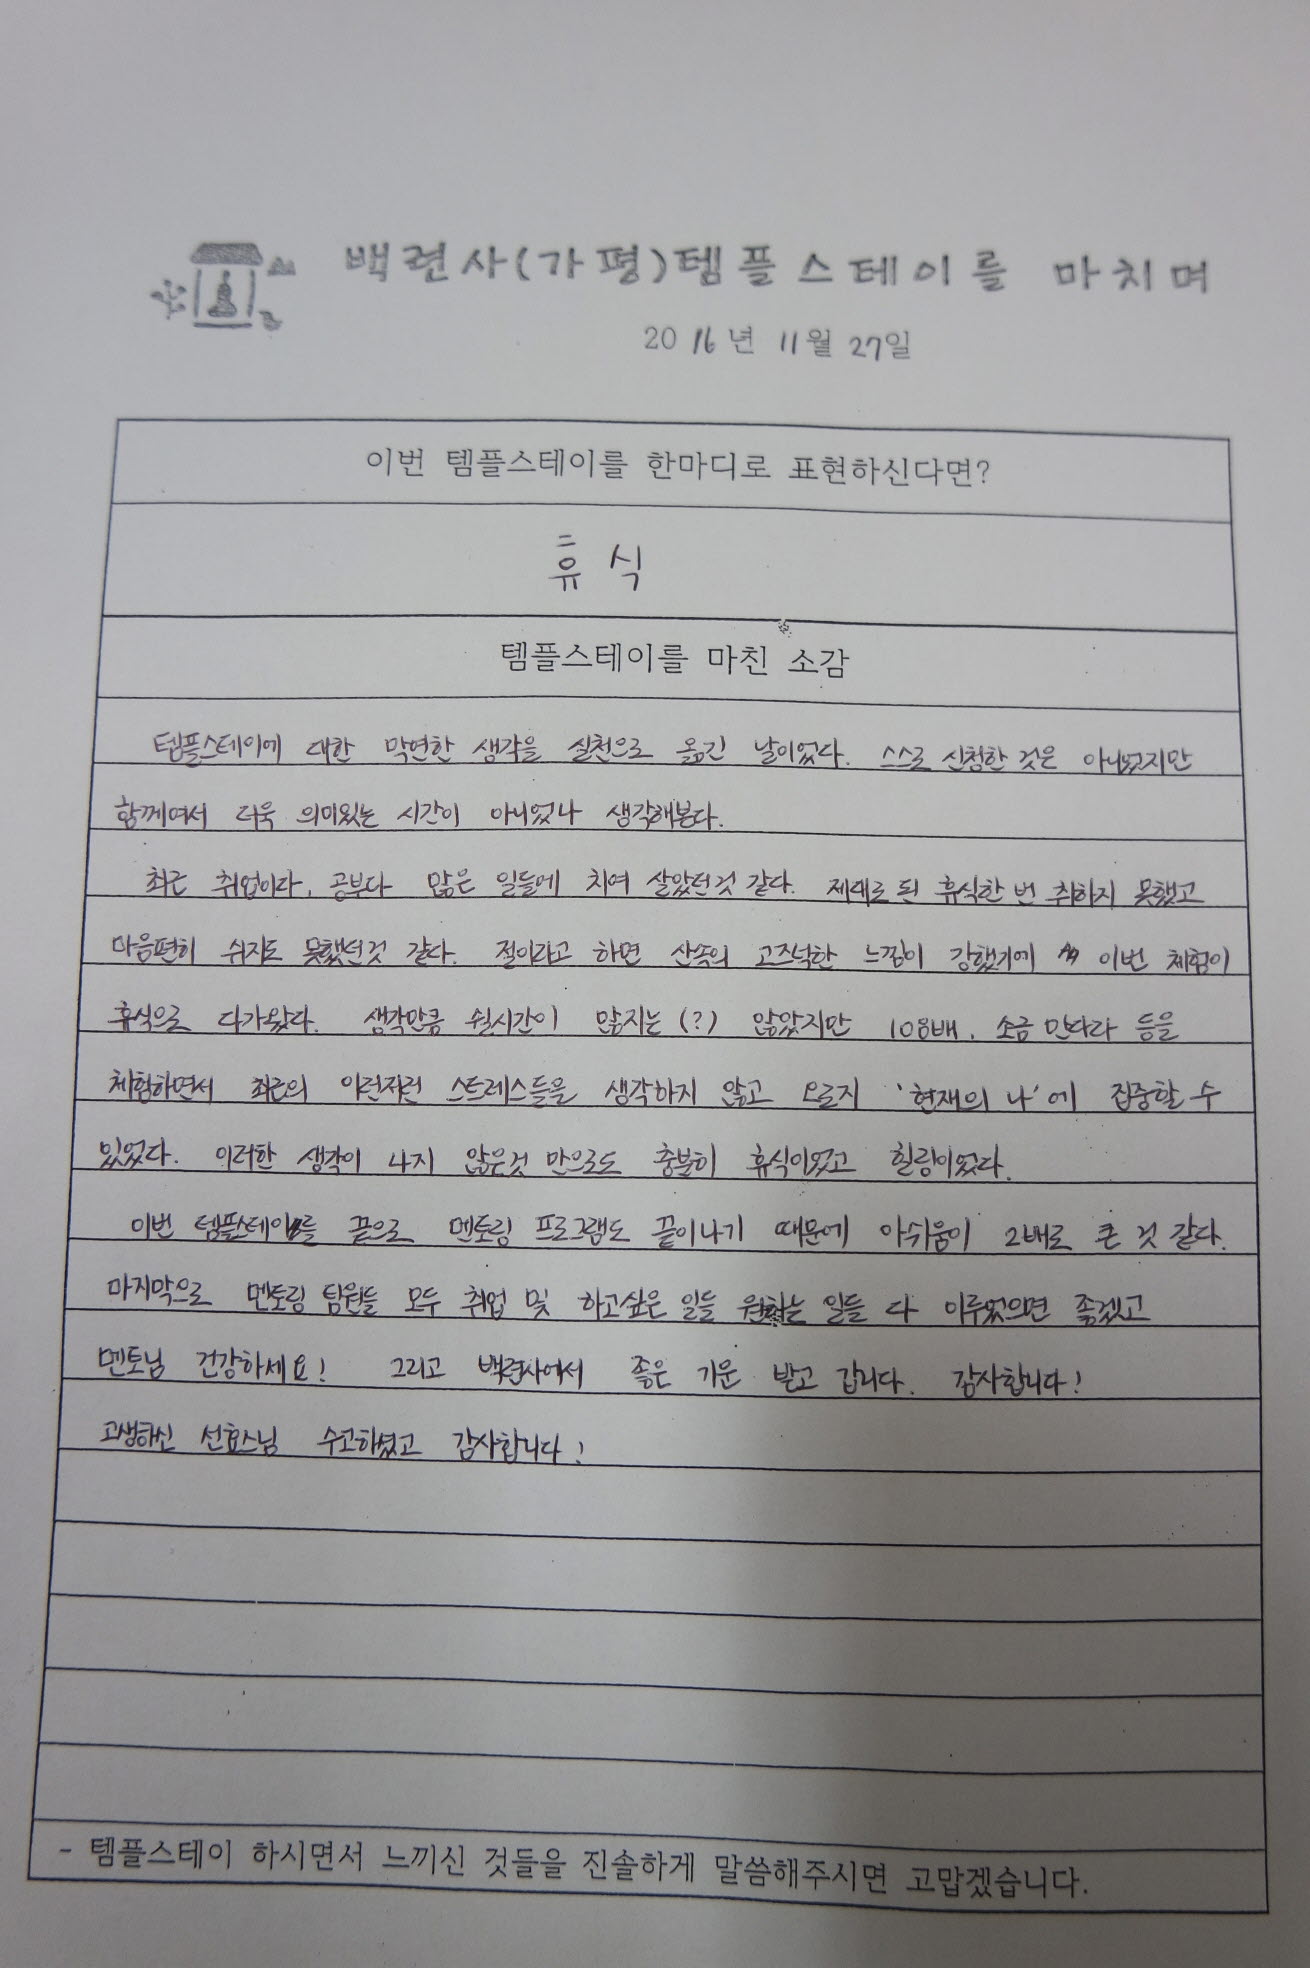 백련사(가평)템플스테이를 마치며
2016년 11월 27일
이번 템플스테이를 한마디로 표현하신다면?
휴식
템플스테이를 마친 소감
템플스테이에 대한 막연한 생각을 실천으로 옮긴 날이었다. 스스로 신청한 것은 아니었지만
함께여서 더욱 의미있는 시간이 아니었나 생각해본다.
최근 취업이다, 공부다 많은 일들에 치여 살았던것 같다. 제대로 된 휴식한 번 취하지 못했고
마음편히 쉬지도 못했던것 같다. 절이라고 하면 산속의 고즈넉한 느낌이 강했기에 이번 체험이
휴식으로 다가왔다. 생각만큼 쉴시간이 많지는(?) 않았지만 108배, 소금 만다라 등을
체험하면서 최근의 이런저런 스트레스들을 생각하지 않고 오로지 '현재의 나'에 집중할 수
있었다. 이러한 생각이 나지 않은것 만으로도 충분히 휴식이었고 힐링이었다.
이번 템플스테이를 끝으로 멘토링 프로그램도 끝이나기 때문에 아쉬움이 2배로 큰 것 같다.
마지막으로 멘토링 팀원들 모두 취업 및 하고싶은 일들 원하는 일들 다 이루었으면 좋겠고
멘토님 건강하세요! 그리고 백련사에서 좋은 기운 받고 갑니다. 감사합니다!
고생하신 선효스님 수고하셨고 감사합니다!
- 템플스테이 하시면서 느끼신 것들을 진솔하게 말씀해주시면 고맙겠습니다.